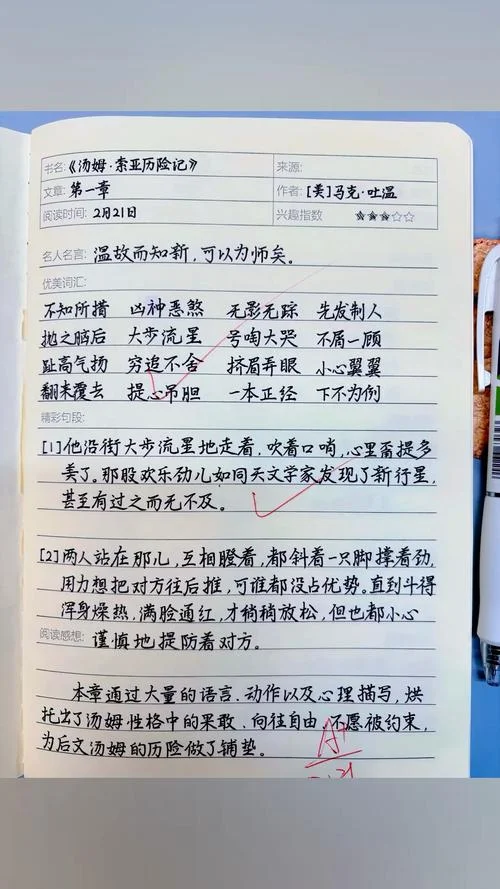 书名:《汤姆·索亚历险记》 来源:
文章: 第一章 作者: [美]马克·吐温
阅读时间: 2月21日 兴趣指数 ★★★☆☆
名人名言: 温故而知新,可以为师矣。
优美词汇:
不知所措 凶神恶煞 无影无踪 先发制人
抛之脑后 大步流星 号啕大哭 不屑一顾
趾高气扬 穷追不舍 挤眉弄眼 小心翼翼
翻来覆去 提心吊胆 一本正经 下不为例
精彩句段:
[1]他沿街大步流星地走着,吹着口哨,心里甭提多
美了。那股欢乐劲儿如同天文学家发现了新行星,
甚至有过之而无不及。
[2]两人站在那儿,互相瞪着,都斜着一只脚撑着劲,
用力想把对方往后推,可谁都没占优势。直到斗得
浑身燥热,满脸通红,才稍稍放松,但也都小心
阅读感想: 谨慎地提防着对方。
本章通过大量的语言、动作以及心理描写,烘
托出了汤姆性格中的果敢、向往自由、不愿被约束,
为后文汤姆的历险做了铺垫。
A+